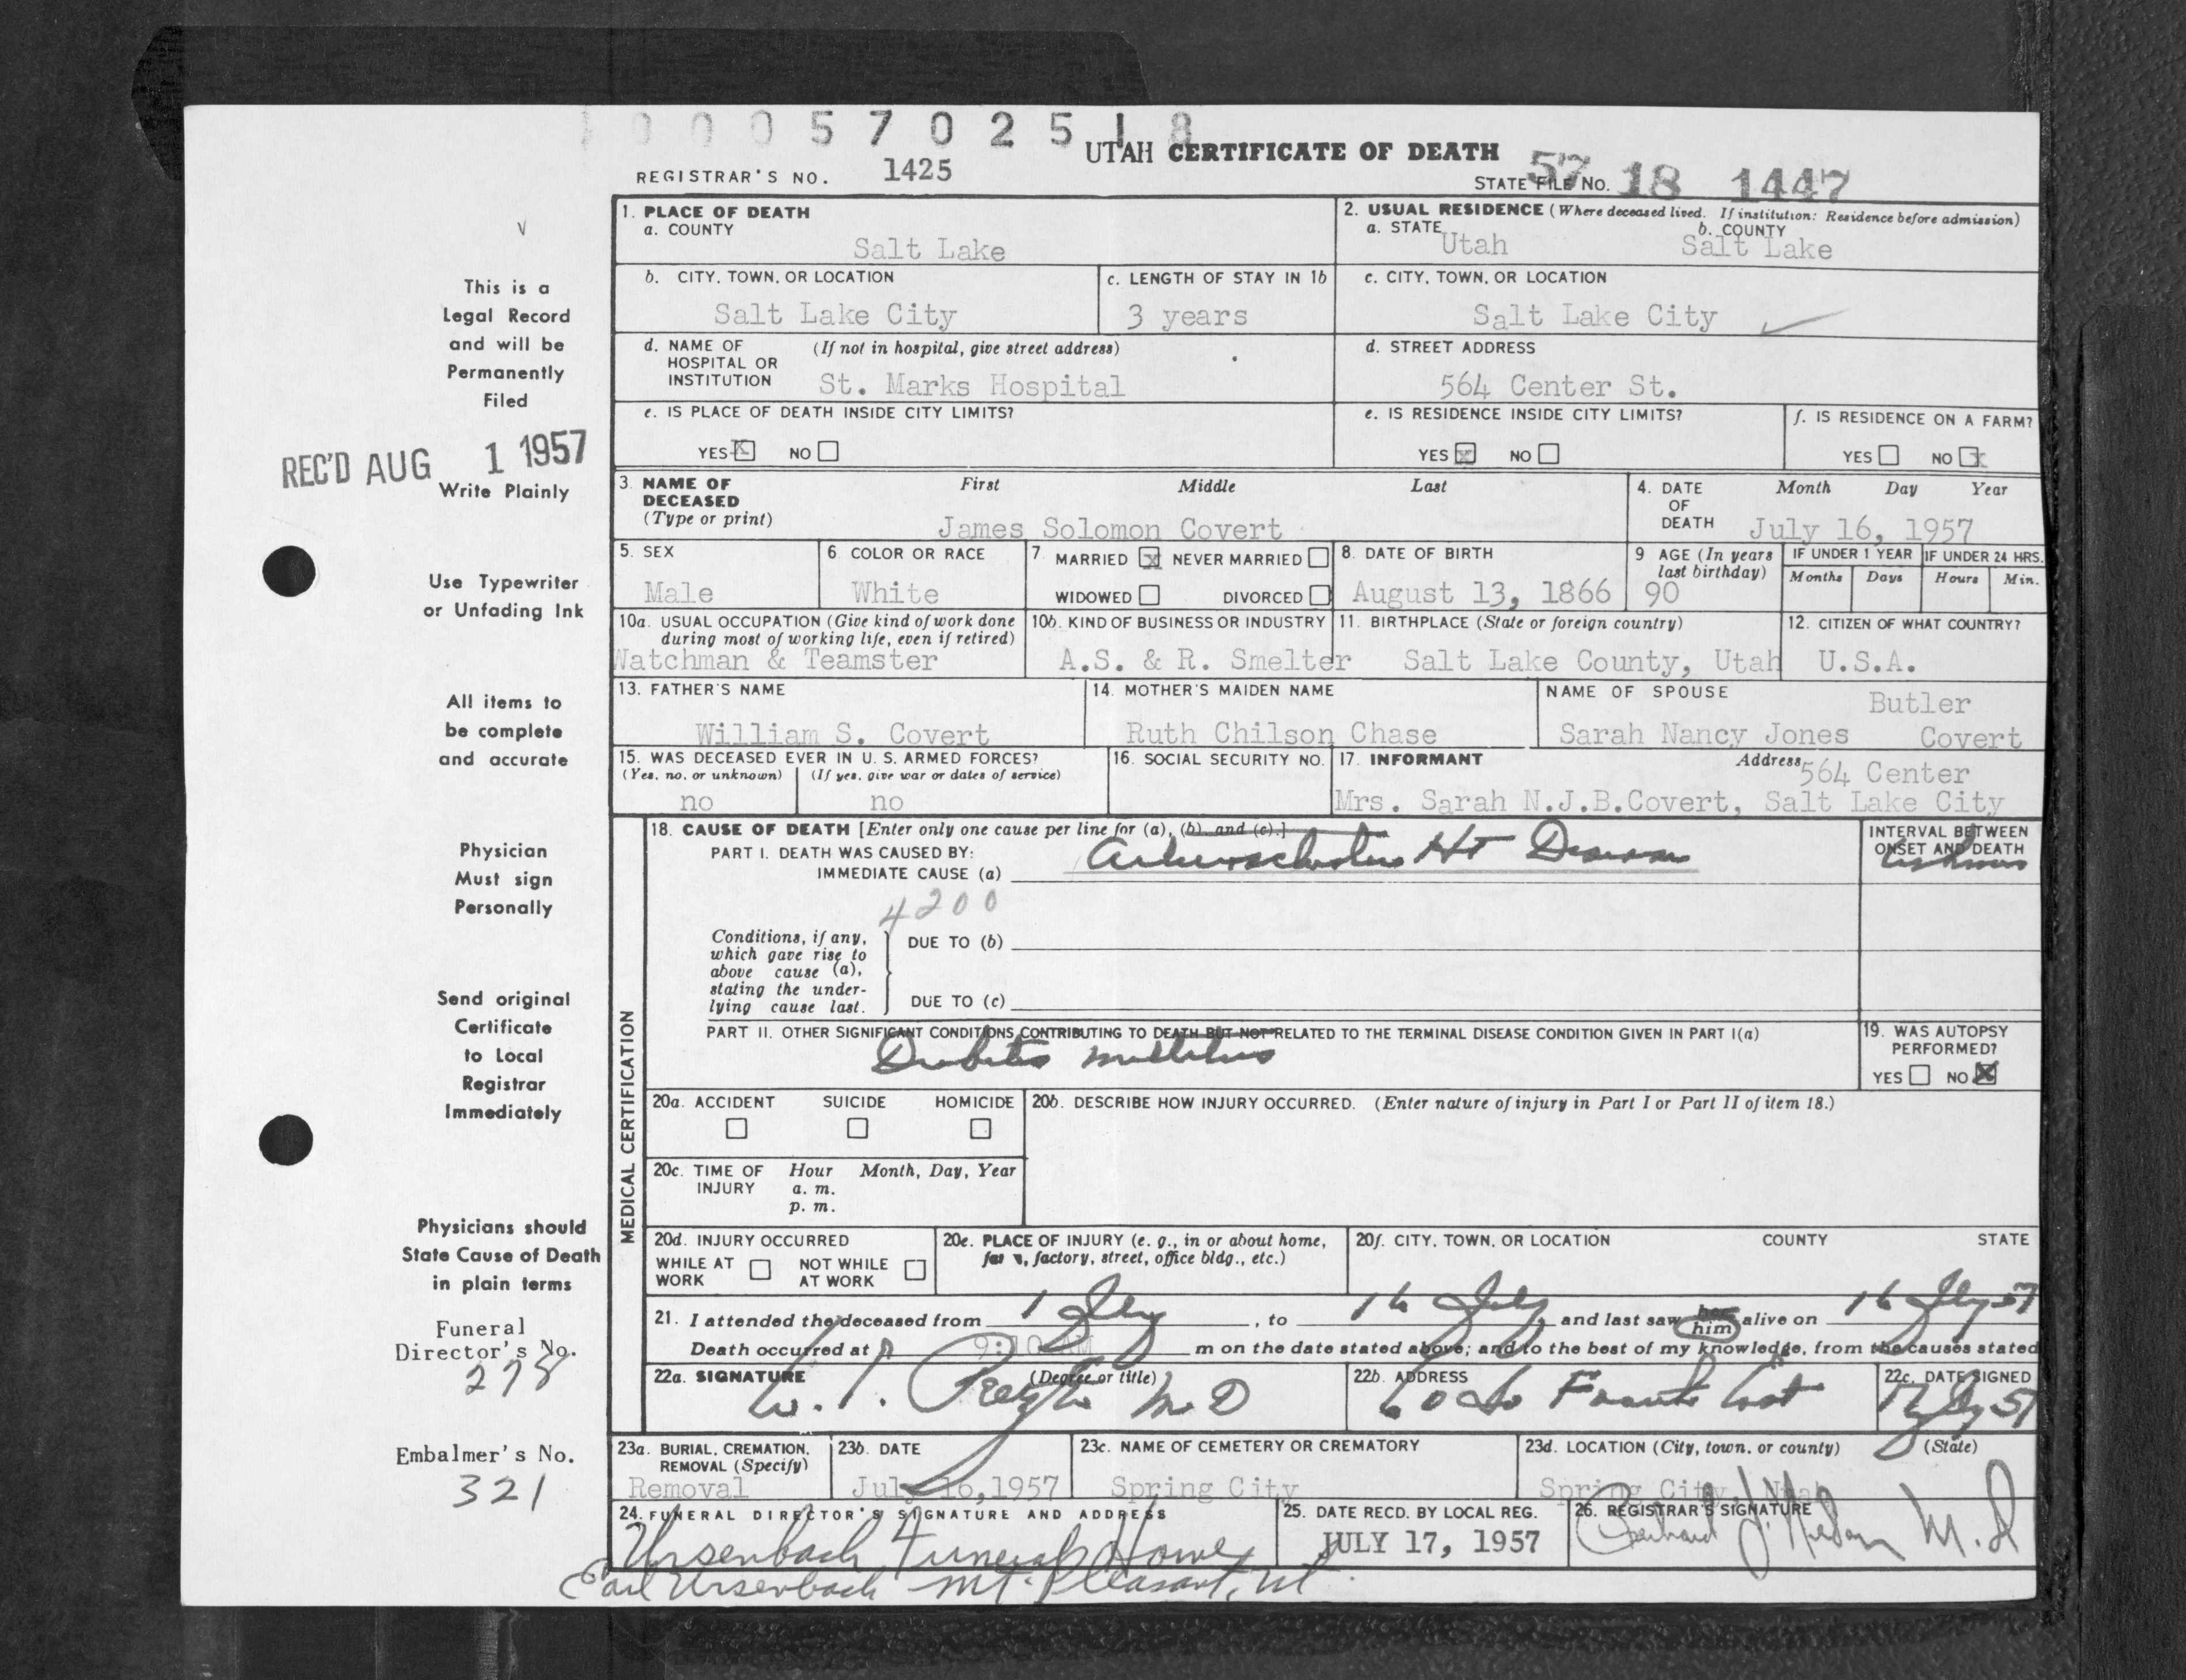 00057025 1 8
UTAH CERTIFICATE OF DEATH
REGISTRAR'S NO. 1425
STATE FILE NO. 57 18 1447
1. PLACE OF DEATH
a. COUNTY
Salt Lake
2. USUAL RESIDENCE (Where deceased lived. If institution: Residence before admission)
a. STATE Utah b. COUNTY Salt Lake
b. CITY, TOWN, OR LOCATION
Salt Lake City
c. LENGTH OF STAY IN 1b
3 years
c. CITY, TOWN, OR LOCATION
Salt Lake City
d. NAME OF HOSPITAL OR INSTITUTION (If not in hospital, give street address)
St. Marks Hospital
d. STREET ADDRESS
564 Center St.
e. IS PLACE OF DEATH INSIDE CITY LIMITS?
YES X NO
e. IS RESIDENCE INSIDE CITY LIMITS?
YES X NO
f. IS RESIDENCE ON A FARM?
YES NO X
3. NAME OF DECEASED (Type or print)
First Middle Last
James Solomon Covert
4. DATE OF DEATH
Month Day Year
July 16, 1957
5. SEX
Male
6. COLOR OR RACE
White
7. MARRIED X NEVER MARRIED
WIDOWED DIVORCED
8. DATE OF BIRTH
August 13, 1866
9 AGE (In years last birthday)
90
IF UNDER 1 YEAR
Months Days
IF UNDER 24 HRS.
Hours Min.
10a. USUAL OCCUPATION (Give kind of work done during most of working life, even if retired)
Watchman & Teamster
10b. KIND OF BUSINESS OR INDUSTRY
A.S. & R. Smelter
11. BIRTHPLACE (State or foreign country)
Salt Lake County, Utah
12. CITIZEN OF WHAT COUNTRY?
U.S.A.
13. FATHER'S NAME
William S. Covert
14. MOTHER'S MAIDEN NAME
Ruth Chilson Chase
NAME OF SPOUSE
Butler
Sarah Nancy Jones Covert
15. WAS DECEASED EVER IN U. S. ARMED FORCES?
(Yes, no, or unknown) (If yes, give war or dates of service)
no no
16. SOCIAL SECURITY NO.
17. INFORMANT Address
564 Center
Mrs. Sarah N.J.B.Covert, Salt Lake City
MEDICAL CERTIFICATION
18. CAUSE OF DEATH [Enter only one cause per line for (a), (b), and (c).]
PART I. DEATH WAS CAUSED BY:
IMMEDIATE CAUSE (a) Ht Disease
INTERVAL BETWEEN ONSET AND DEATH
4200
Conditions, if any, which gave rise to above cause (a), stating the underlying cause last.
DUE TO (b)
DUE TO (c)
PART II. OTHER SIGNIFICANT CONDITIONS CONTRIBUTING TO DEATH BUT NOT RELATED TO THE TERMINAL DISEASE CONDITION GIVEN IN PART I(a)
Diabetes mellitus
19. WAS AUTOPSY PERFORMED?
YES NO X
20a. ACCIDENT SUICIDE HOMICIDE
20b. DESCRIBE HOW INJURY OCCURRED. (Enter nature of injury in Part I or Part II of item 18.)
20c. TIME OF INJURY Hour Month, Day, Year
a. m.
p. m.
20d. INJURY OCCURRED
WHILE AT WORK NOT WHILE AT WORK
20e. PLACE OF INJURY (e. g., in or about home, farm, factory, street, office bldg., etc.)
20f. CITY, TOWN, OR LOCATION COUNTY STATE
21. I attended the deceased from 1 July, to 16 July, and last saw her him alive on 16 July 57
Death occurred at 9:10 AM m on the date stated above; and to the best of my knowledge, from the causes stated
22a. SIGNATURE (Degree or title)
M D
22b. ADDRESS
22c. DATE SIGNED
23a. BURIAL, CREMATION, REMOVAL (Specify)
Removal
23b. DATE
July 16,1957
23c. NAME OF CEMETERY OR CREMATORY
Spring City
23d. LOCATION (City, town, or county) (State)
Spring City, Utah
24. FUNERAL DIRECTOR'S SIGNATURE AND ADDRESS
Ursenbach Funeral Home
Earl Ursenbach Mt. Pleasant, Ut.
25. DATE RECD. BY LOCAL REG.
JULY 17, 1957
26. REGISTRAR'S SIGNATURE
M.D
This is a
Legal Record
and will be
Permanently
Filed
REC'D AUG 1 1957
Write Plainly
Use Typewriter
or Unfading Ink
All items to
be complete
and accurate
Physician
Must sign
Personally
Send original
Certificate
to Local
Registrar
Immediately
Physicians should
State Cause of Death
in plain terms
Funeral
Director's No.
278
Embalmer's No.
321